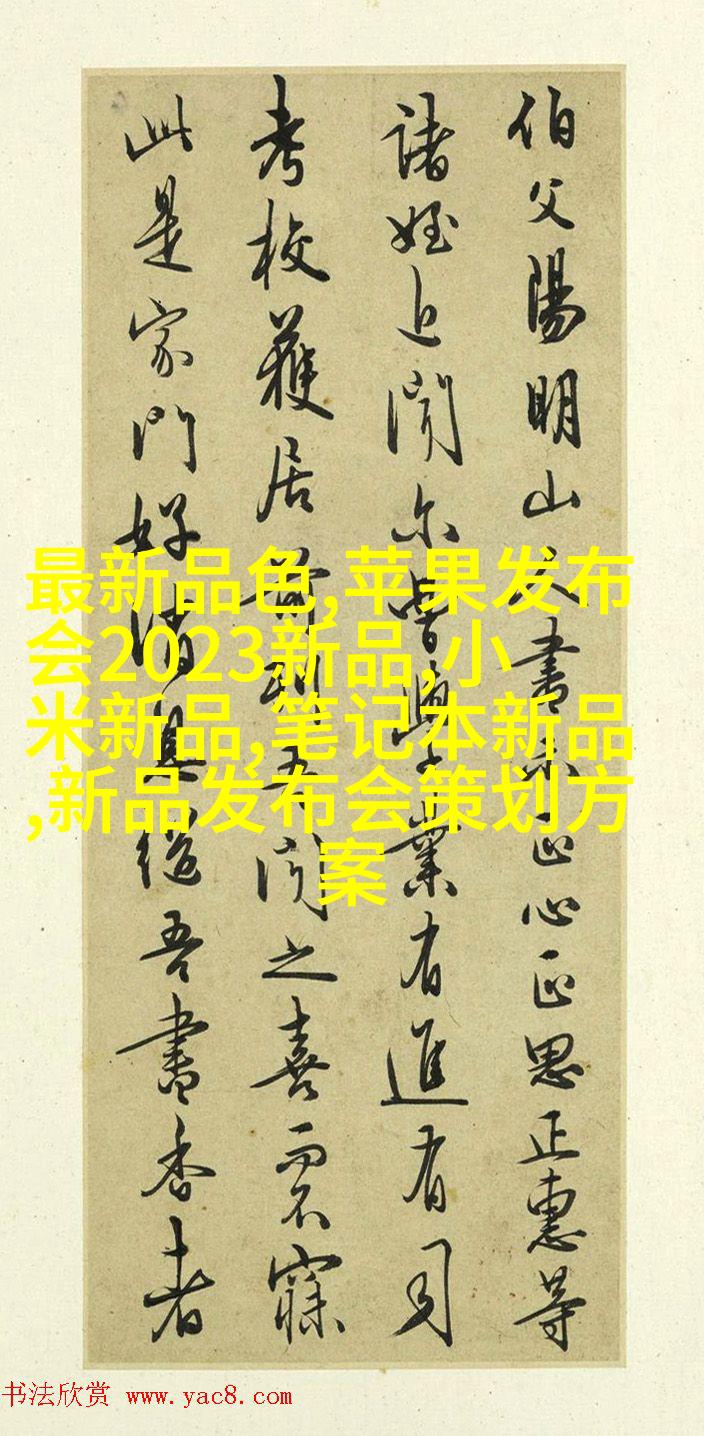 伯父陽明山人書示正心正思正惠等
諸姪近聞尔曹學業有進有司
考校獲居前列吾聞之喜而不寐
此是家門好消息繼吾書香者
最新品色,苹果发布
会2023新品,小
米新品,笔记本新品
,新品发布会策划方
案
书法欣赏 www.yac8.com